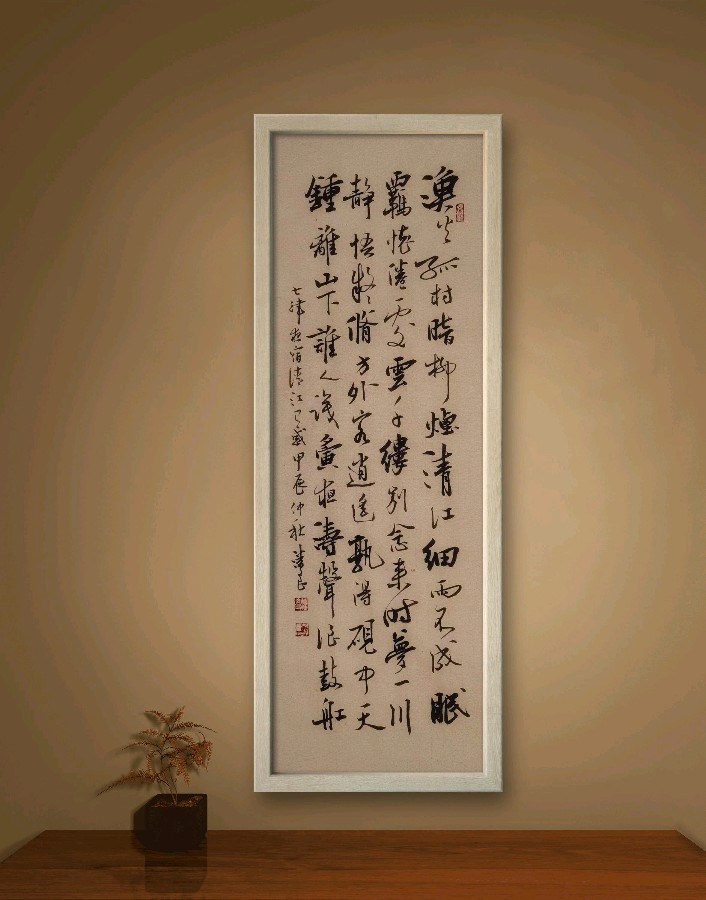 漁火孤村暗柳煙清江細雨不成眠
羈情倦處雲千縷別念來時夢一川
靜悟脩方外客逍遙孰得硯中天
鍾離山下誰人識濤聲鼓舡
七律夜宿清江歲甲辰仲秋